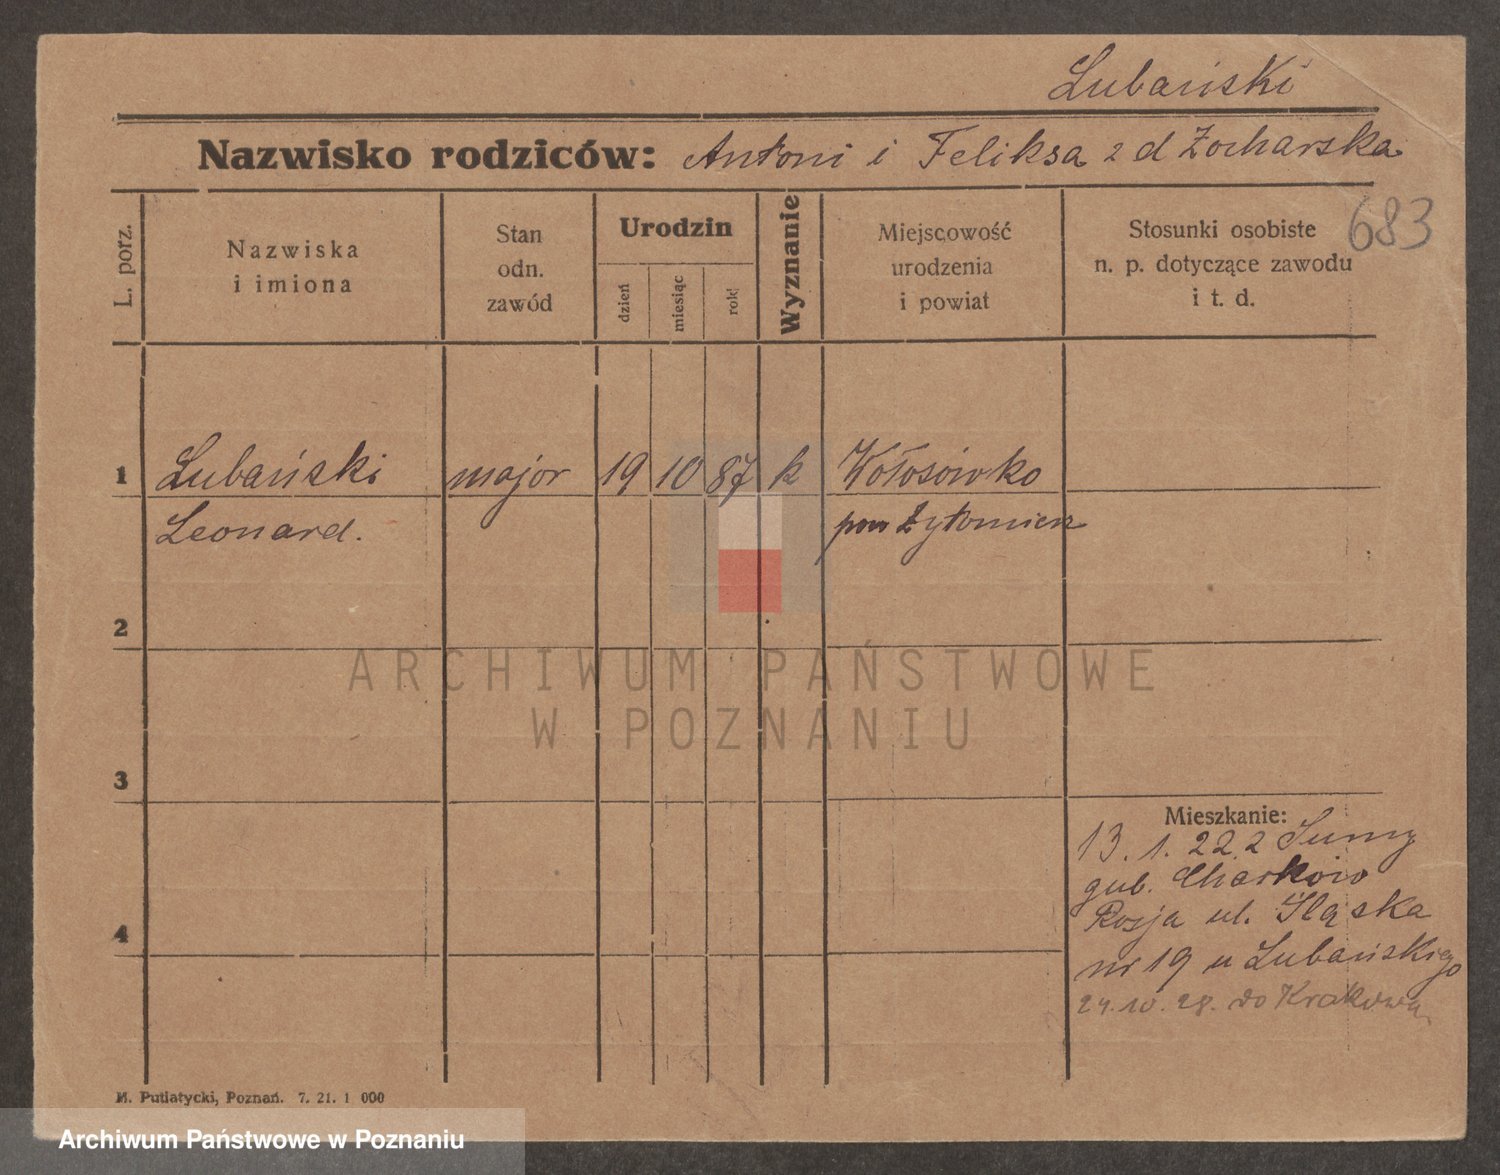 Lubański
Nazwisko rodziców: Antoni i Feliksa z d Zocharska
683
L. porz.
Nazwiska
i imiona
Stan
odn.
zawód
Urodzin
dzień
miesiąc
rok
Wyznanie
Miejscowość
urodzenia
i powiat
Stosunki osobiste
n. p. dotyczące zawodu
i t. d.
1 Lubański major 19 10 87 k Wołosówko
Leonard. pow Żytomierz
2
ARCHIWUM PAŃSTWOWE
W POZNANIU
3
Mieszkanie:
13. 1. 22 z Sumy
gub. Charków
Rosja ul. Śląska
4
nr 19 u Lubańskiego
24.10.28. do Krakowa
M. Putiatycki, Poznań. 7. 21. 1 000
Archiwum Państwowe w Poznaniu